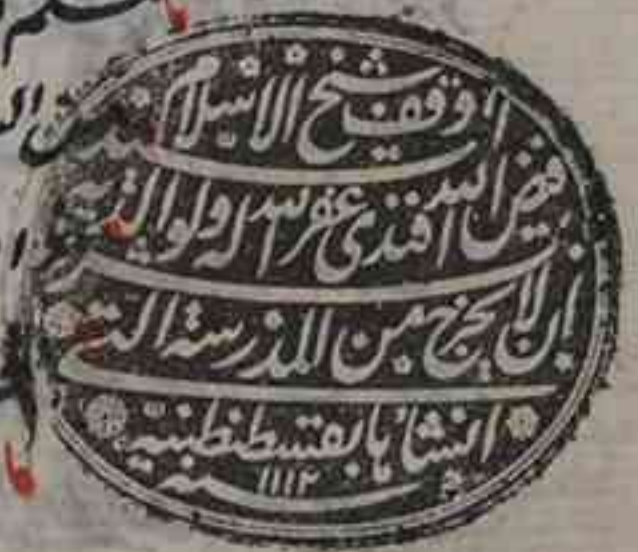 اوقف شيخ الاسلام السيد
فيض الله افندى غفر الله له ولوالديه
بشرط ان لا يخرج من المدرسة التى
انشاها بقسطنطنية
سنه ١١١٢